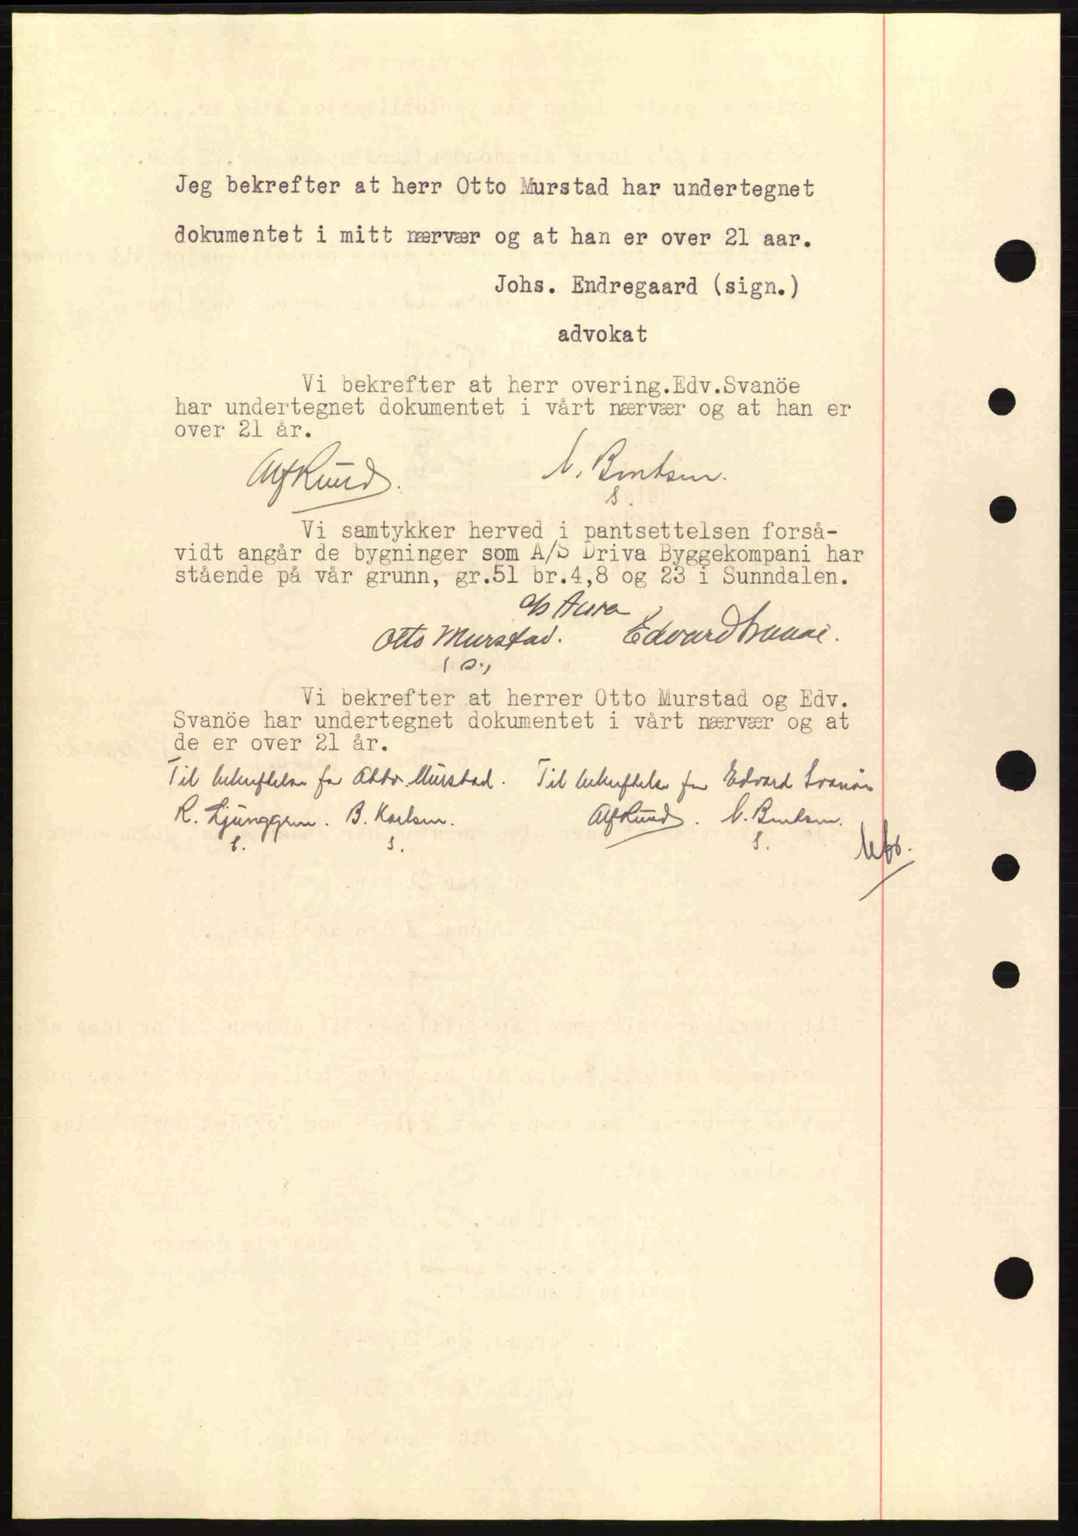 Jeg bekrefter at herr Otto Murstad har undertegnet
dokumentet i mitt nærvær og at han er over 21 aar.
Johs. Endregaard (sign.)
advokat
Vi bekrefter at herr overing.Edv.Svanöe
har undertegnet dokumentet i vårt nærvær og at han er
over 21 år.
Alf Ruud. N. Berntsen.
s.
Vi samtykker herved i pantsettelsen forså-
vidt angår de bygninger som A/S Driva Byggekompani har
stående på vår grunn, gr.51 br.4,8 og 23 i Sunndalen.
a/s Aura
Otto Murstad. Edvard Svanøe.
(s.)
Vi bekrefter at herrer Otto Murstad og Edv.
Svanöe har undertegnet dokumentet i vårt nærvær og at
de er over 21 år.
Til bekreftelse for Otto Murstad. Til bekreftelse for Edvard Svanöe
R. Ljunggren. B. Karlsen. Alf Ruud. N. Berntsen.
s. s. s.